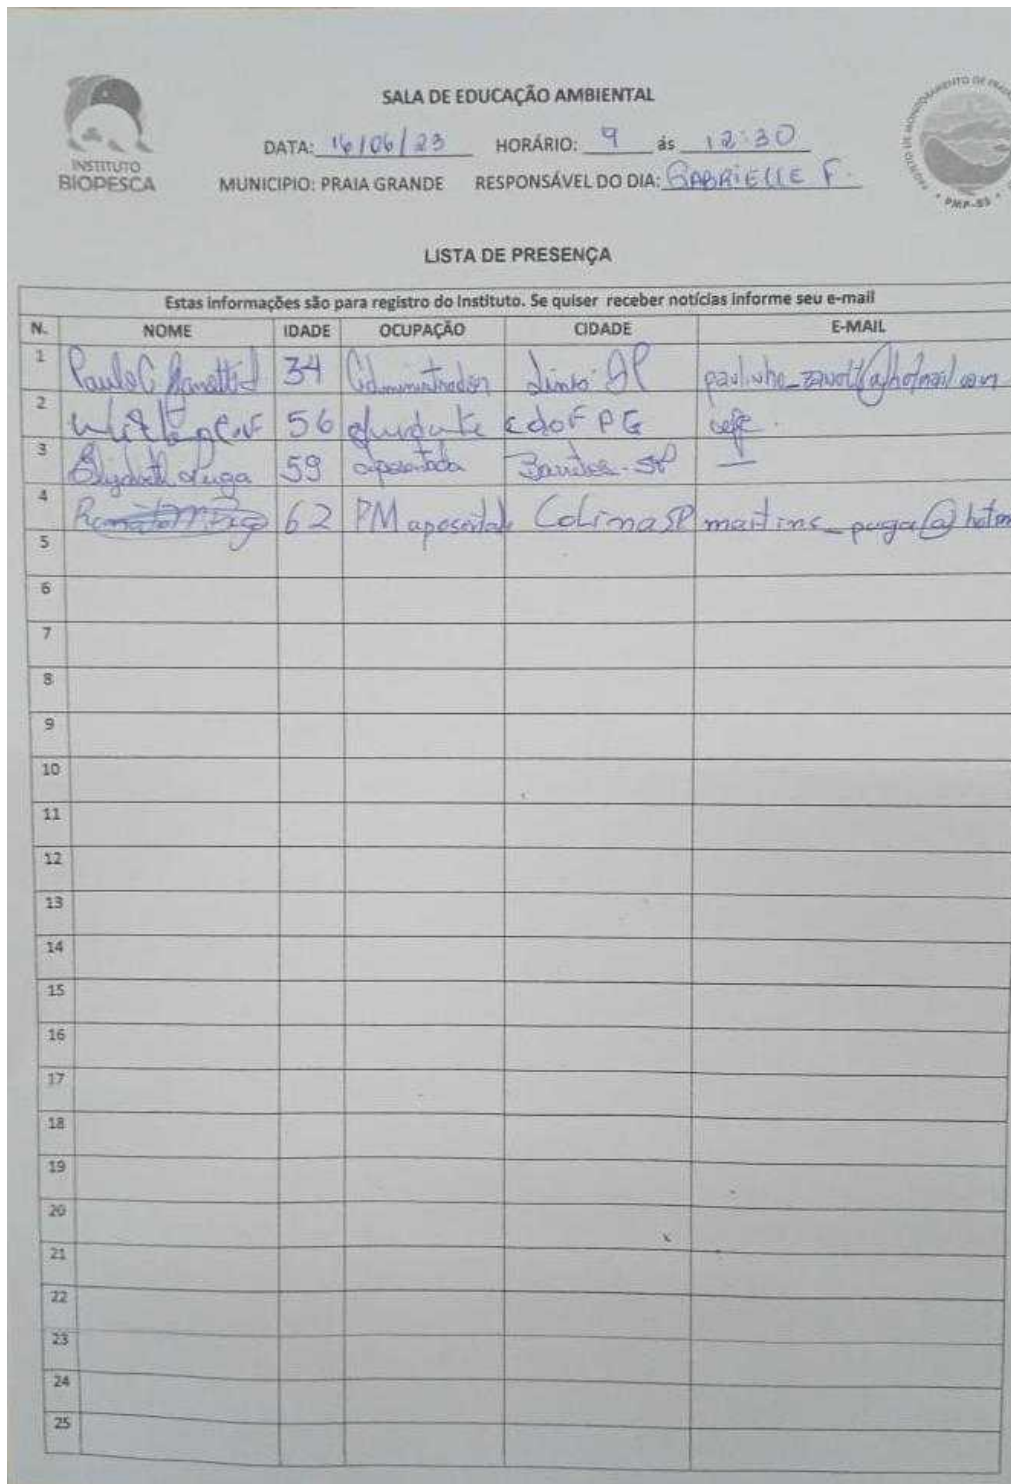 INSTITUTO
BIOPESCA
SALA DE EDUCAÇÃO AMBIENTAL
DATA: 16/06/23 HORÁRIO: 9 ás 12:30
MUNICIPIO: PRAIA GRANDE RESPONSÁVEL DO DIA: GABRIELLE F.
PMP-BS
LISTA DE PRESENÇA
Estas informações são para registro do Instituto. Se quiser receber notícias informe seu e-mail
N. NOME IDADE OCUPAÇÃO CIDADE E-MAIL
1 Paulo 34 Administrador SP
2 56 PG
3 59 aposentada SP —
4 62 PM Colina SP martins_puga@hotm
5
6
7
8
9
10
11
12
13
14
15
16
17
18
19
20
21
22
23
24
25